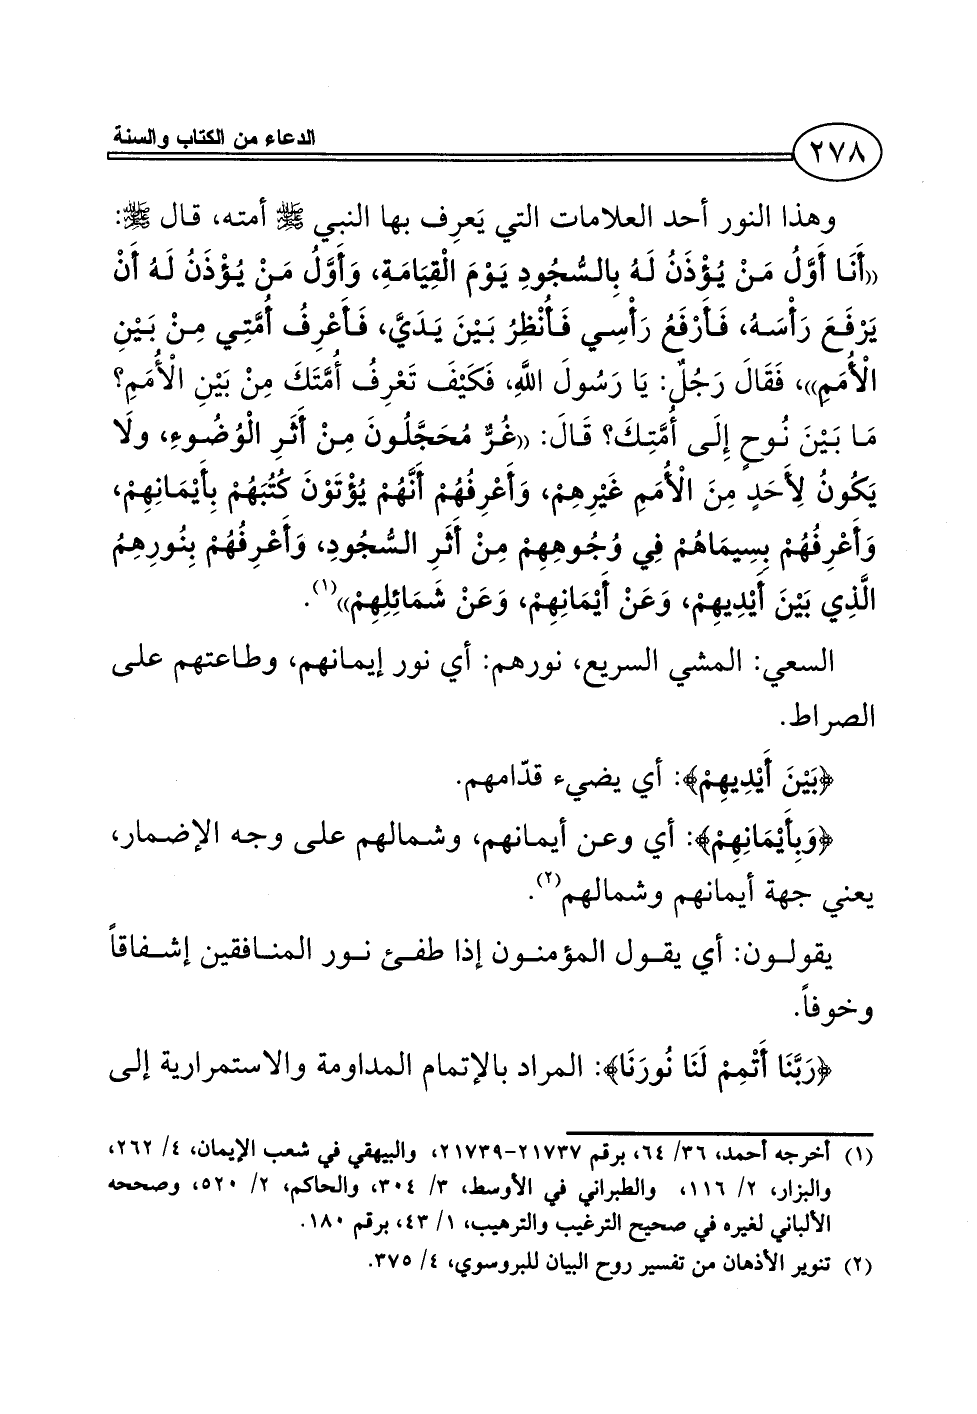 ٢٧٨
الدعاء من الكتاب والسنة
وهذا النور أحد العلامات التي يَعرِف بها النبي ﷺ أمته، قال ﷺ:
((أَنَا أَوَّلُ مَنْ يُؤْذَنُ لَهُ بِالسُّجُودِ يَوْمَ الْقِيَامَةِ، وَأَوَّلُ مَنْ يُؤْذَنُ لَهُ أَنْ
يَرْفَعَ رَأْسَهُ، فَأَرْفَعُ رَأْسِي فَأَنْظِرُ بَيْنَ يَدَيَّ، فَأَعْرِفُ أُمَّتِي مِنْ بَيْنِ
الْأُمَمِ))، فَقَالَ رَجُلٌ: يَا رَسُولَ اللَّهِ، فَكَيْفَ تَعْرِفُ أُمَّتَكَ مِنْ بَيْنِ الْأُمَمِ؟
مَا بَيْنَ نُوحٍ إِلَى أُمَّتِكَ؟ قَالَ: ((غُرٌّ مُحَجَّلُونَ مِنْ أَثَرِ الْوُضُوءِ، ولَا
يَكُونُ لِأَحَدٍ مِنَ الْأُمَمِ غَيْرِهِمْ، وَأَعْرِفُهُمْ أَنَّهُمْ يُؤْتَوْنَ كُتُبَهُمْ بِأَيْمَانِهِمْ،
وَأَعْرِفُهُمْ بِسِيمَاهُمْ فِي وُجُوهِهِمْ مِنْ أَثَرِ السُّجُودِ، وَأَعْرِفُهُمْ بِنُورِهِمُ
الَّذِي بَيْنَ أَيْدِيهِمْ، وَعَنْ أَيْمَانِهِمْ، وَعَنْ شَمَائِلِهِمْ))(١).
السعي: المشي السريع، نورهم: أي نور إيمانهم، وطاعتهم على
الصراط.
﴿بَيْنَ أَيْدِيهِمْ﴾: أي يضيء قدّامهم.
﴿وَبِأَيْمَانِهِمْ﴾: أي وعن أيمانهم، وشمالهم على وجه الإضمار،
يعني جهة أيمانهم وشمالهم(٢).
يقولون: أي يقول المؤمنون إذا طفئ نور المنافقين إشفاقاً
وخوفاً.
﴿رَبَّنَا أَتْمِمْ لَنَا نُورَنَا﴾: المراد بالإتمام المداومة والاستمرارية إلى
(١) أخرجه أحمد، ٣٦/ ٦٤، برقم ٢١٧٣٧-٢١٧٣٩، والبيهقي في شعب الإيمان، ٤/ ٢٦٢،
والبزار، ٢/ ١١٦، والطبراني في الأوسط، ٣/ ٣٠٤، والحاكم، ٢/ ٥٢٠، وصححه
الألباني لغيره في صحيح الترغيب والترهيب، ١/ ٤٣، برقم ١٨٠.
(٢) تنوير الأذهان من تفسير روح البيان للبروسوي، ٤/ ٣٧٥.